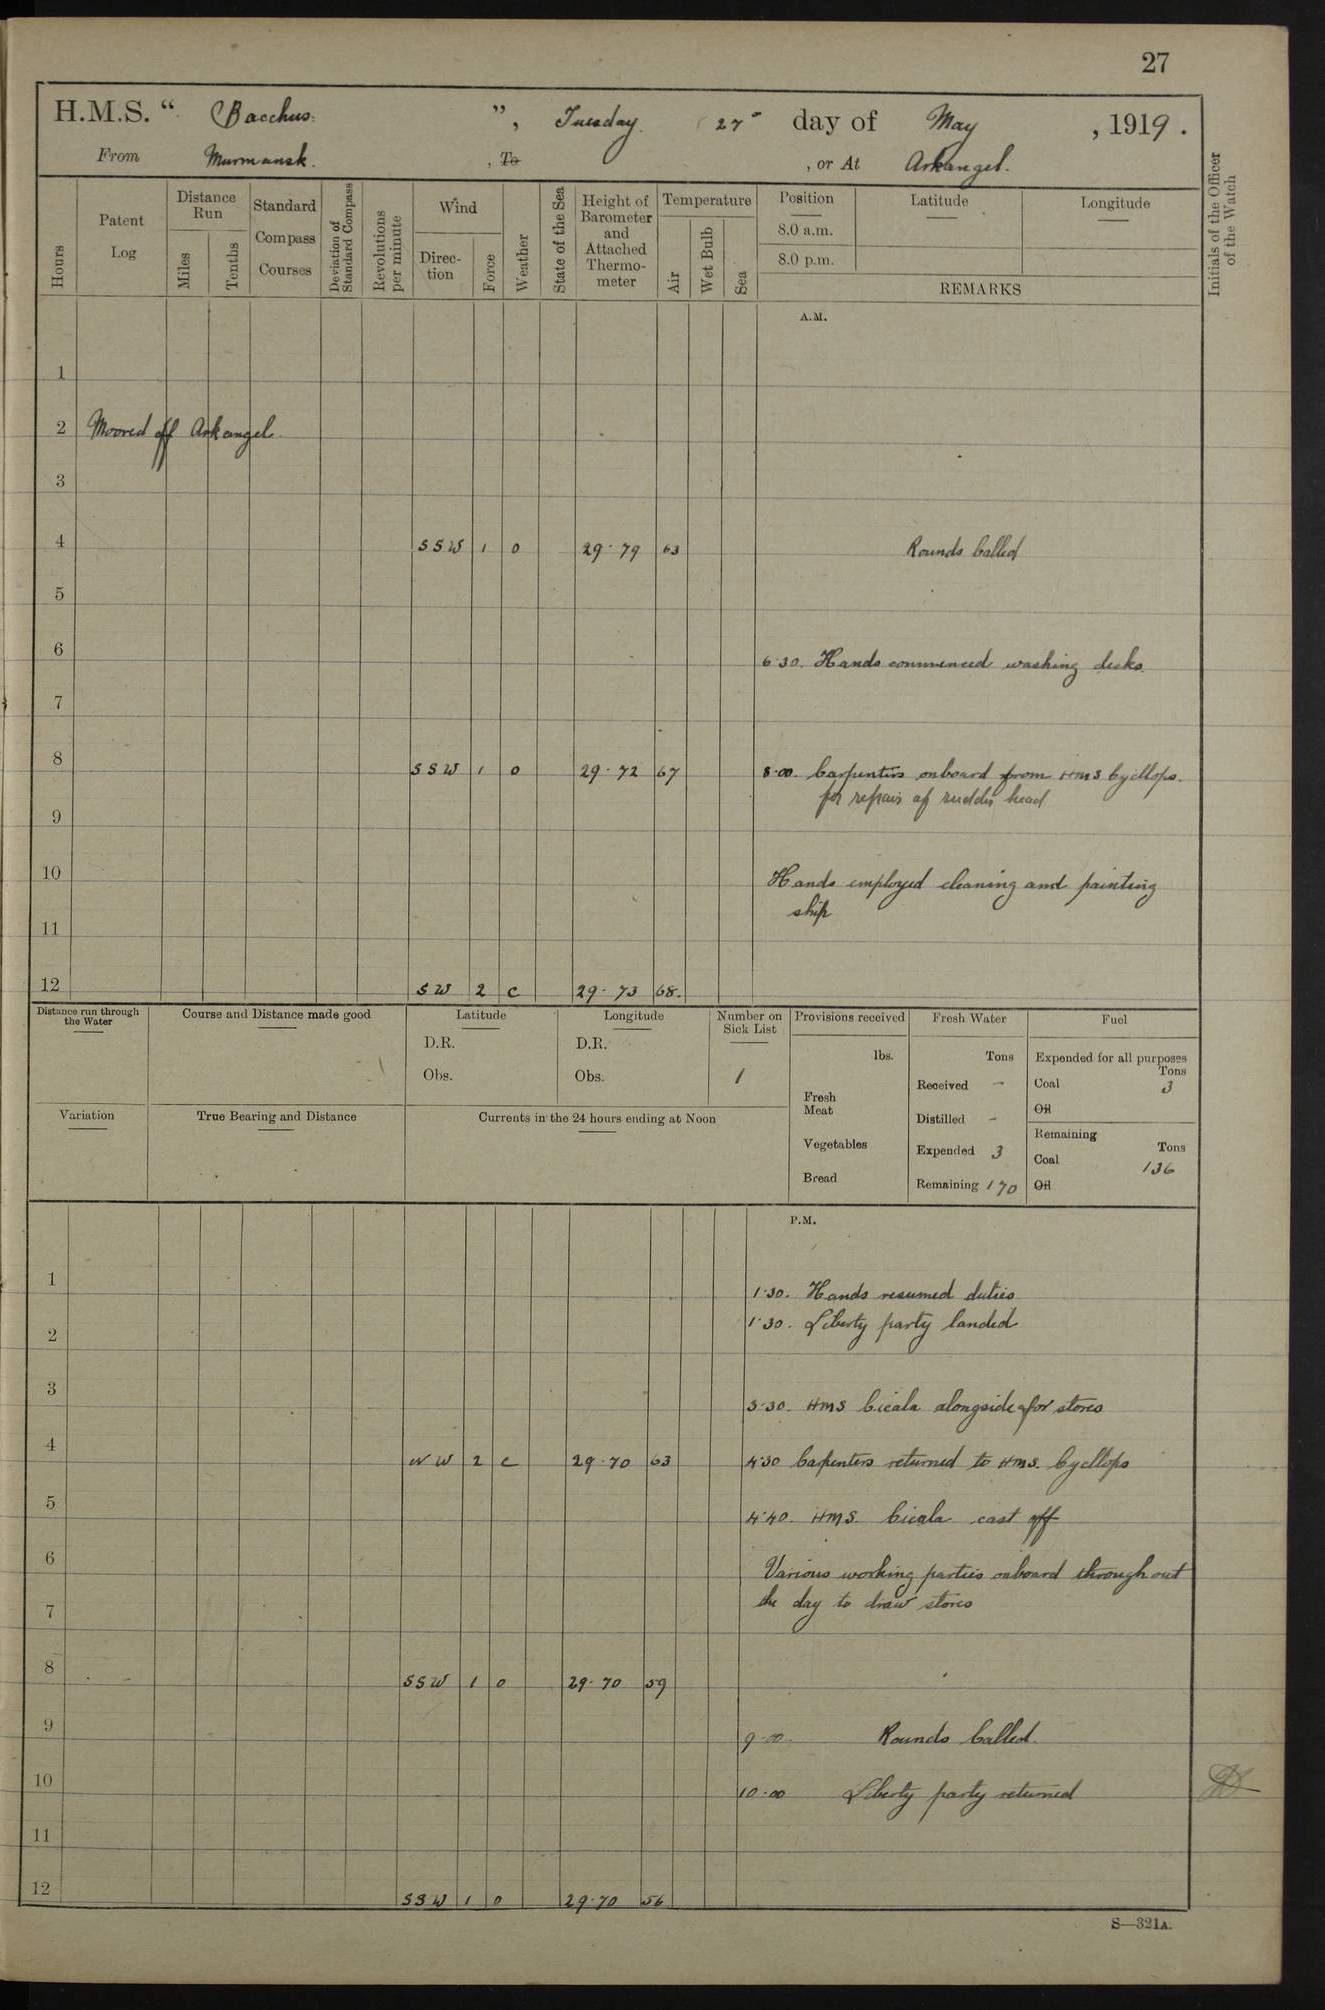 27
H.M.S. “ Bacchus ”, Tuesday 27th day of May , 1919.
From Murmansk. , To , or At Arkangel.
Hours
Patent Log
Distance Run
Miles
Tenths
Standard Compass Courses
Deviation of Standard Compass
Revolutions per minute
Wind
Direction
Force
Weather
State of the Sea
Height of Barometer and Attached Thermometer
Temperature
Air
Wet Bulb
Sea
Position
8.0 a.m.
8.0 p.m.
Latitude
Longitude
REMARKS
Initials of the Officer of the Watch
A.M.
1
2 Moored off Arkangel.
3
4 SSW 1 o 29.79 63 Rounds Called
5
6 6.30. Hands commenced washing decks.
7
8 SSW 1 o 29.72 67 8.00. Carpenters onboard from HMS Cycllops.
for repair of rudder head
9
10 Hands employed cleaning and painting
ship
11
12 SW 2 c 29.73 68.
Distance run through the Water
Course and Distance made good
Latitude
D.R.
Obs.
Longitude
D.R.
Obs.
Number on Sick List
1
Provisions received
lbs.
Fresh Meat
Vegetables
Bread
Fresh Water
Tons
Received -
Distilled -
Expended 3
Remaining 170
Fuel
Expended for all purposes
Tons
Coal 3
Oil
Remaining
Tons
Coal 136
Oil
Variation
True Bearing and Distance
Currents in the 24 hours ending at Noon
P.M.
1 1.30. Hands resumed duties
2 1.30. Liberty party landed
3 3.30. HMS Cicala alongside for stores
4 WW 2 c 29.70 63 4.30 Carpenters returned to HMS. Cycllops
5 4.40. HMS. Cicala cast off
6 Various working parties onboard throughout
7 the day to draw stores
8 SSW 1 o 29.70 59
9 9.00. Rounds Called.
10 10.00 Liberty party returned
11
12 SSW 1 o 29.70 56
S—321A.